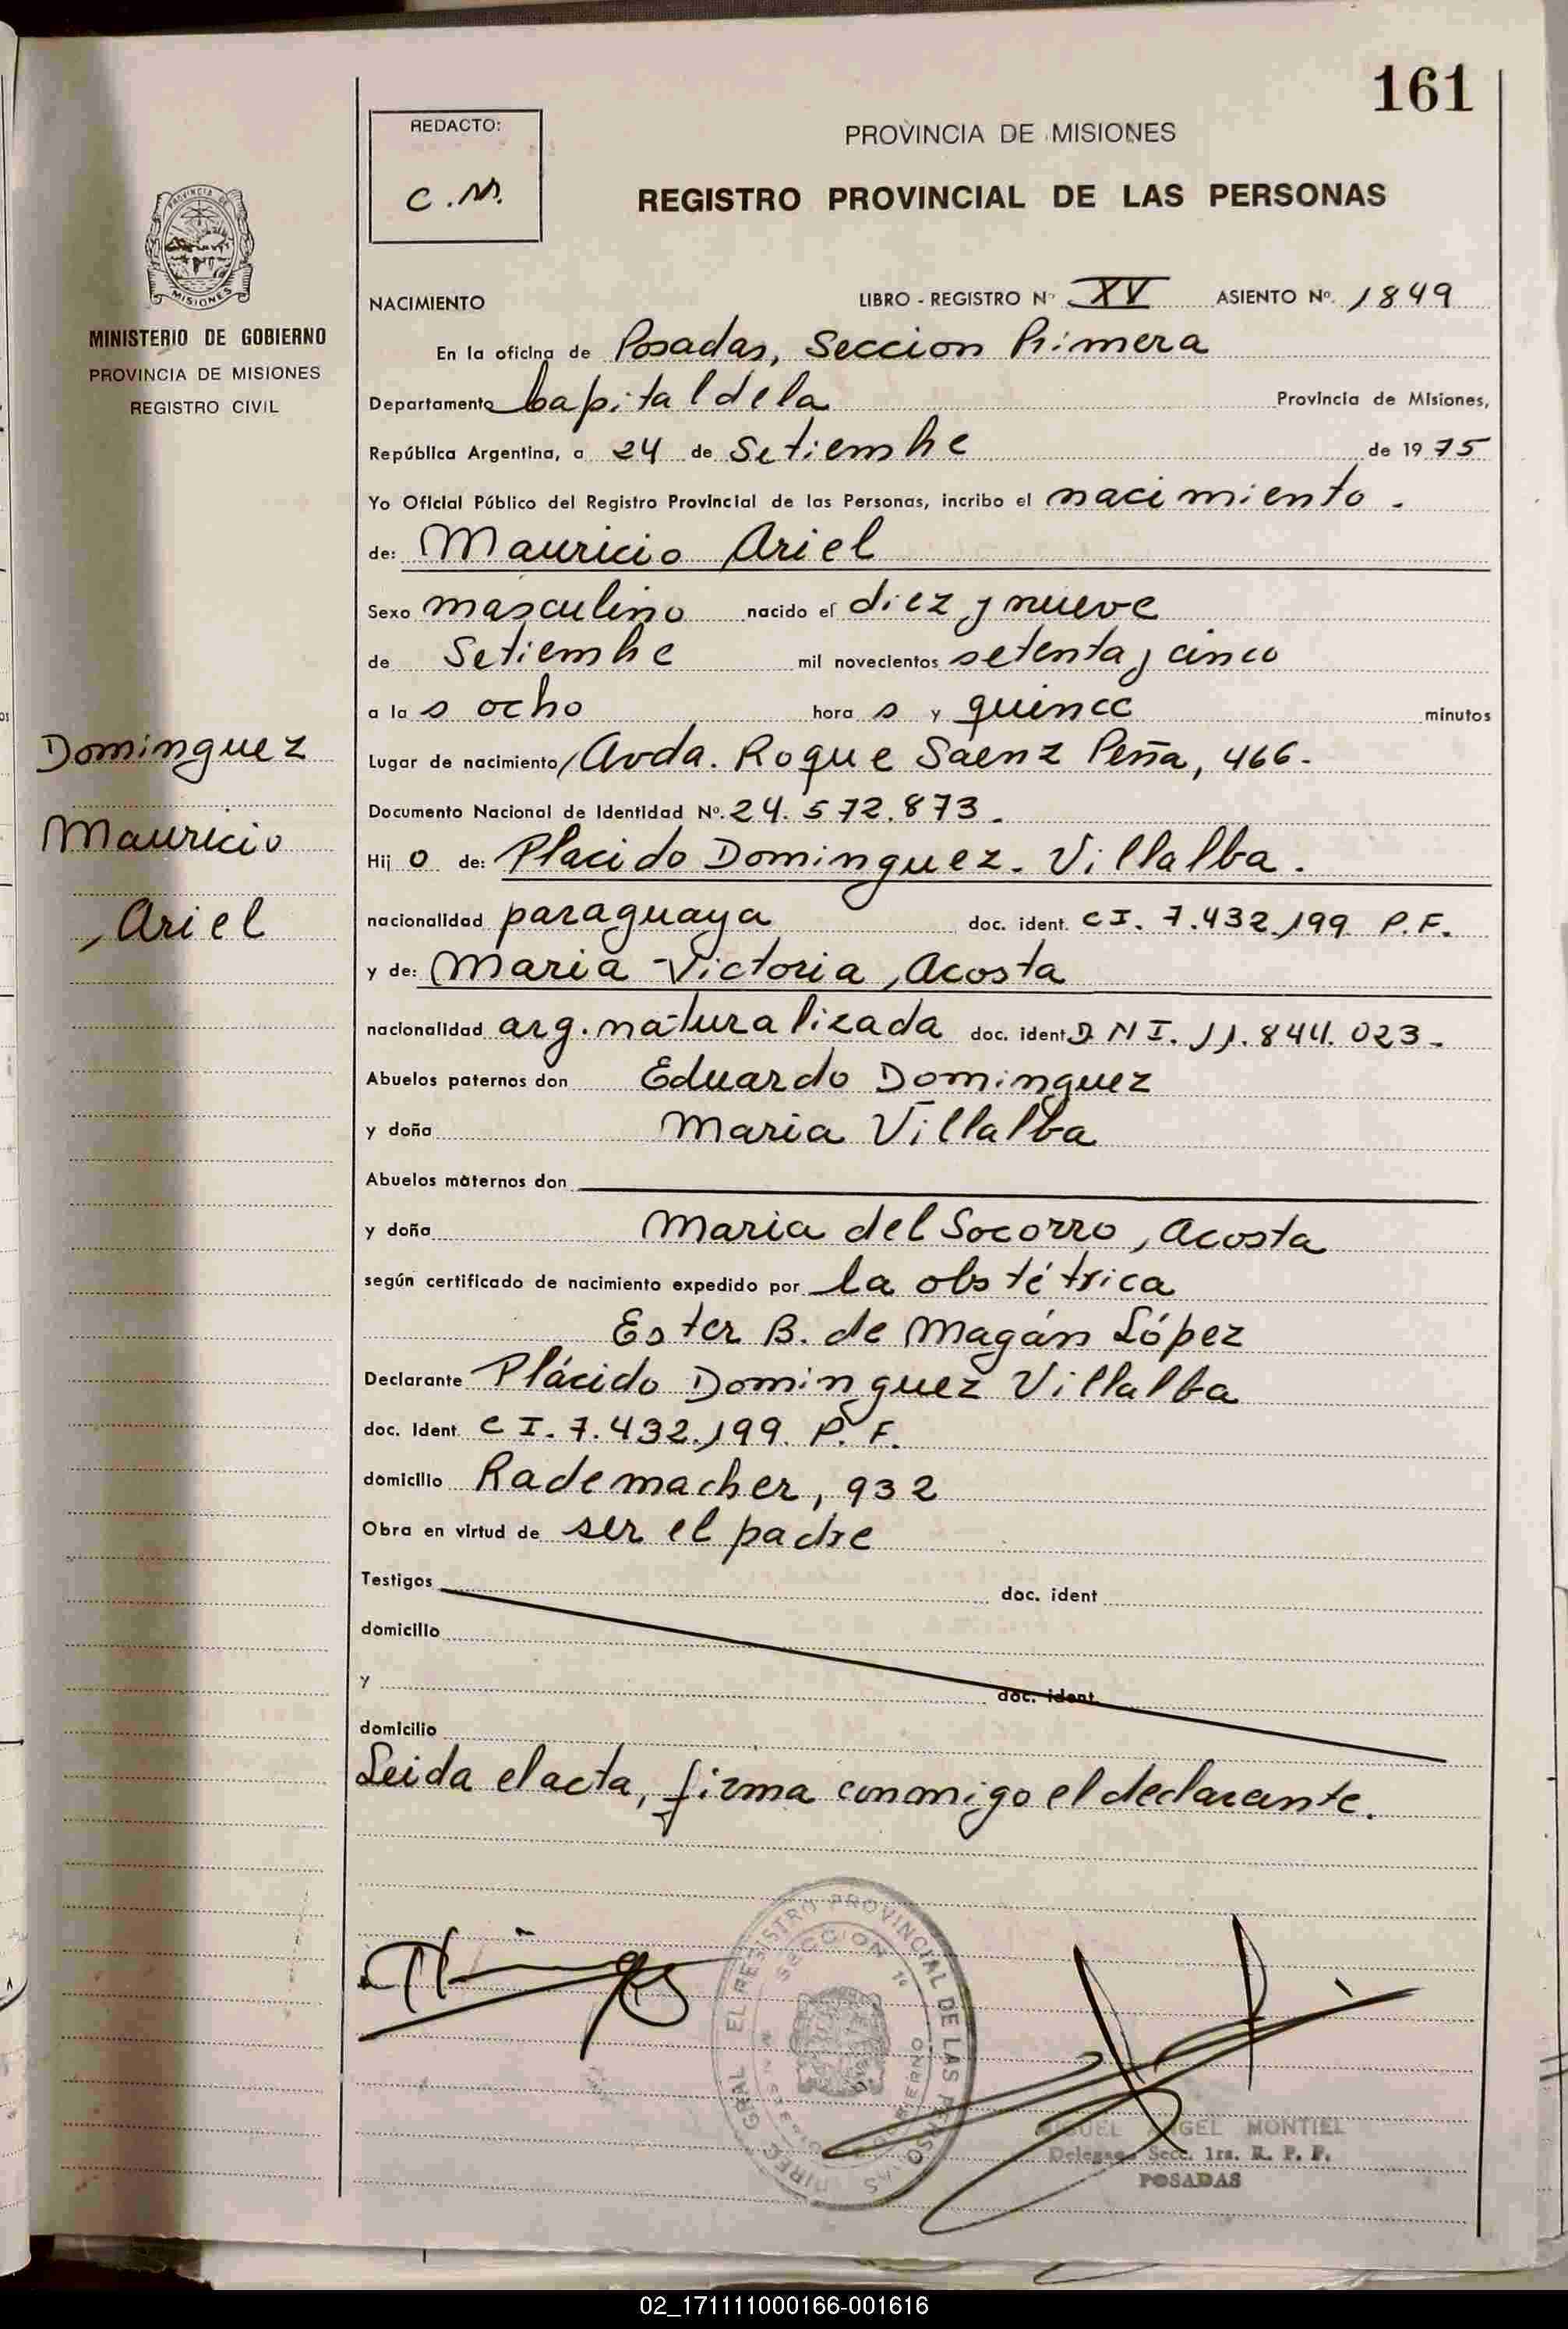 161
REDACTO:
C.M.
PROVINCIA DE MISIONES
REGISTRO PROVINCIAL DE LAS PERSONAS
PROVINCIA DE
MISIONES
MINISTERIO DE GOBIERNO
PROVINCIA DE MISIONES
REGISTRO CIVIL
NACIMIENTO LIBRO - REGISTRO Nº XV ASIENTO Nº. 1849
En la oficina de Posadas, Seccion Primera
Departamento Capital de la Provincia de Misiones,
República Argentina, a 24 de Setiembre de 1975
Yo Oficial Público del Registro Provincial de las Personas, incribo el nacimiento.
de: Mauricio Ariel
Sexo masculino nacido el diez y nueve
de Setiembre mil novecientos setenta y cinco
a las ocho horas y quince minutos
Dominguez
Mauricio
Ariel
Lugar de nacimiento Avda. Roque Saenz Peña, 466.
Documento Nacional de Identidad Nº. 24.572.873.
Hijo de: Placido Dominguez. Villalba.
nacionalidad paraguaya doc. ident. CI. 7.432.199 P.F.
y de: Maria Victoria Acosta
nacionalidad arg. naturalizada doc. ident D.N I. 11.844.023.
Abuelos paternos don Eduardo Dominguez
y doña Maria Villalba
Abuelos maternos don
y doña Maria del Socorro Acosta
según certificado de nacimiento expedido por la obstétrica
Ester B. de Magán López
Declarante Plácido Dominguez Villalba
doc. Ident. C I. 7.432.199. P. F.
domicilio Rademacher, 932
Obra en virtud de ser el padre
Testigos doc. ident
domicilio
y doc. ident
domicilio
Leida el acta, firma conmigo el declarante.
DIREC. GRAL. EL REGISTRO PROVINCIAL DE LAS PERSONAS
SECCION 1ª
MIGUEL ANGEL MONTIEL
Delegado Secc. 1ra. R. P. P.
POSADAS
02_171111000166-001616